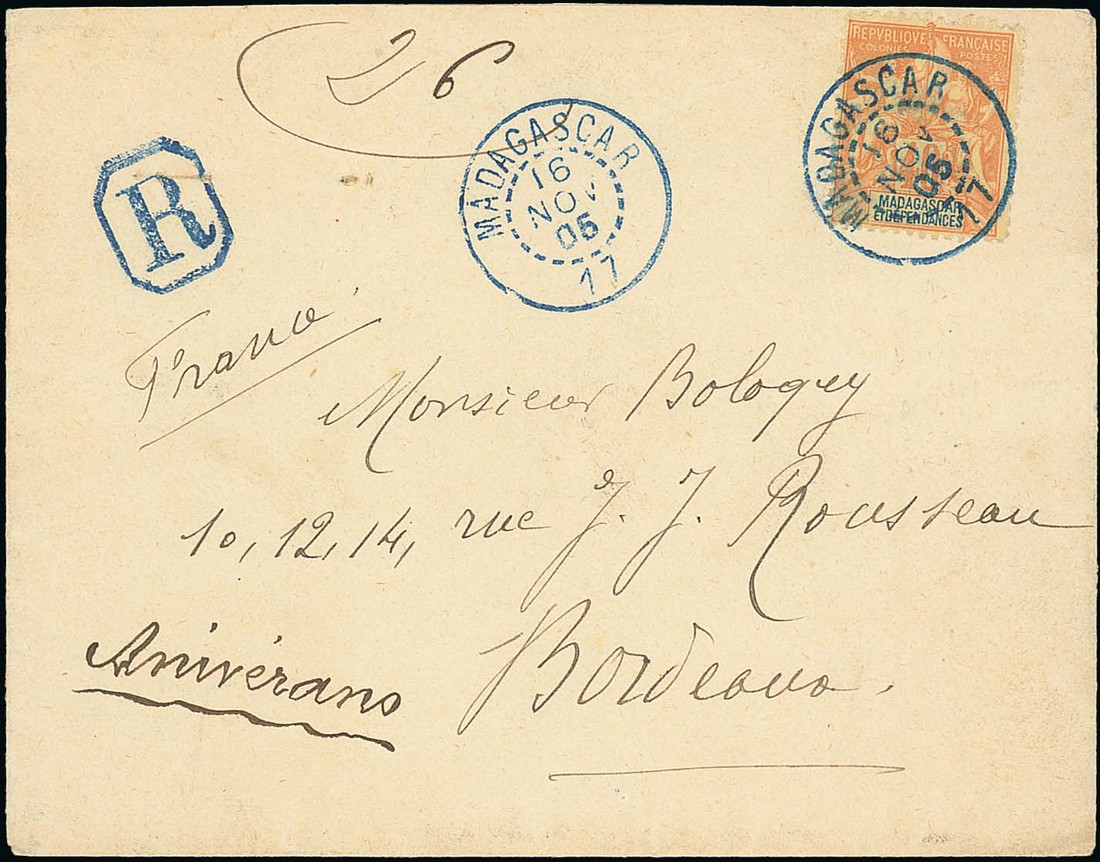 26
REPVBLIQVE FRANÇAISE
COLONIES POSTES
MADAGASCAR
ET DÉPENDANCES
MADAGASCAR
16
NOV
05
17
MADAGASCAR
16
NOV
05
17
R
France
Monsieur Bologney
10, 12, 14, rue J. J. Rousseau
Bordeaux.
Anivérano